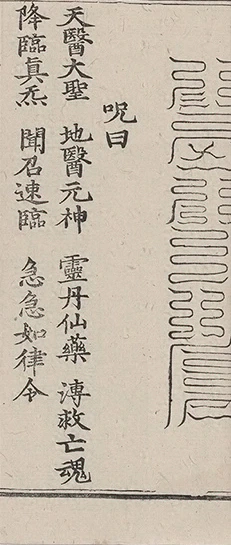 呪曰
天醫大聖　地醫元神　靈丹仙藥　溥救亡魂
降臨真炁　聞召速臨　急急如律令